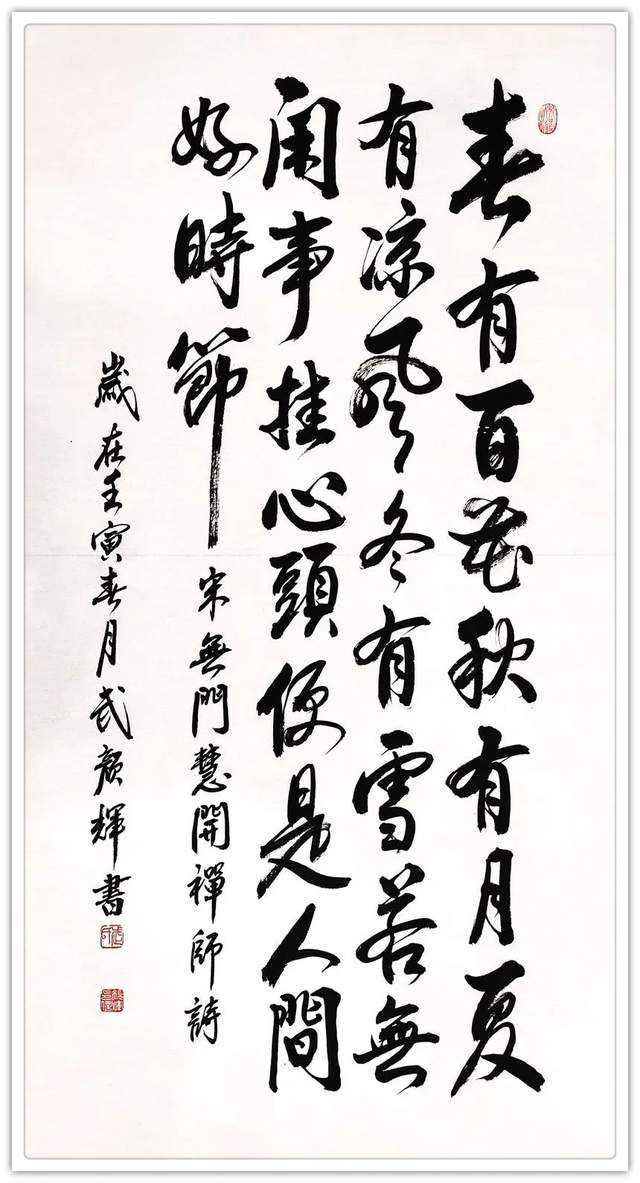 春有百花秋有月夏
有凉风冬有雪若無
闲事挂心頭便是人間
好時節
宋無門慧開禪師詩
歲在壬寅春月武彦輝書